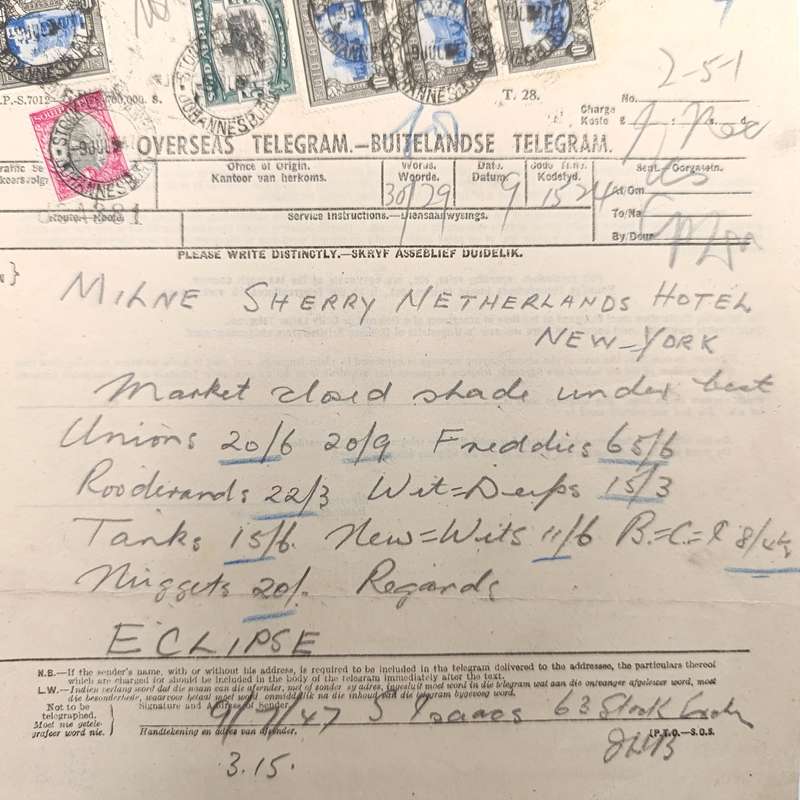 SUID-AFRIKA
P.-S.7012
T. 28.
No. 2-51
Charge
Koste
OVERSEAS TELEGRAM.—BUITELANDSE TELEGRAM.
Office of Origin.
Kantoor van herkoms.
Words.
Woorde.
30/29
Date.
Datum
9
Kodetyd.
1524
Sent.—
At/Om
To/Na
By/Deur
Service Instructions.—Diensaanwysings.
PLEASE WRITE DISTINCTLY.—SKRYF ASSEBLIEF DUIDELIK.
MILNE SHERRY NETHERLANDS HOTEL
NEW-YORK
Market closed shade under best
Unions 20/6 20/9 Freddies 65/6
Rooderands 22/3 Wit=Deeps 15/3
Tanks 15/6 New=Wits 11/6 B.=C.= 8/4½
Nuggets 20/. Regards
ECLIPSE
N.B.—If the sender's name, with or without his address, is required to be included in the telegram delivered to the addressee, the particulars thereof
which are charged for should be included in the body of the telegram immediately after the text.
L.W.—Indien verlang word dat die naam van die afsender, met of sonder sy adres, ingesluit moet word in die telegram wat aan die ontvanger afgelewer word, moet
die besonderhede, waarvoor betaal moet word, onmiddellik na die inhoud van die telegram bygevoeg word.
Not to be
telegraphed.
Moet nie getele-
grafeer word nie.
Signature and Address of Sender.
9/7/47 S Isaacs 63 Stock
Handtekening en adres van afsender.
(P.T.O.—S.O.S.
JHB
3.15.